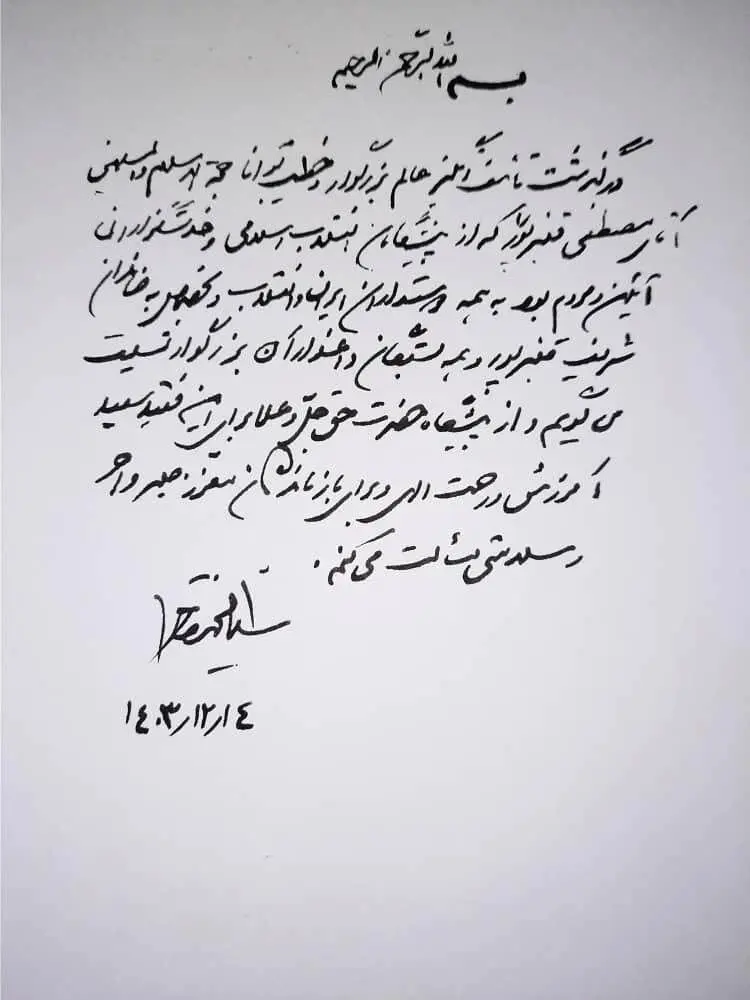 بسم الله الرحمن الرحیم
درگذشت تأسف انگیز عالم بزرگوار و خطیب توانا حجة الاسلام والمسلمین
آقای مصطفی قنبرپور که از پیشگامان انقلاب اسلامی و خدمتگزاران
آئین و مردم بود به همه دوستداران ایران و انقلاب و بخصوص به خاندان
شریف قنبرپور و همه بستگان داغدار آن بزرگوار تسلیت
می گویم و از پیشگاه حضرت حق جل و علا برای این فقید سعید
آمرزش و رحمت الهی و برای بازماندگان معزز صبر و اجر
و سلامتی مسألت می کنم.
۱۴۰۳/۱۲/۱۴